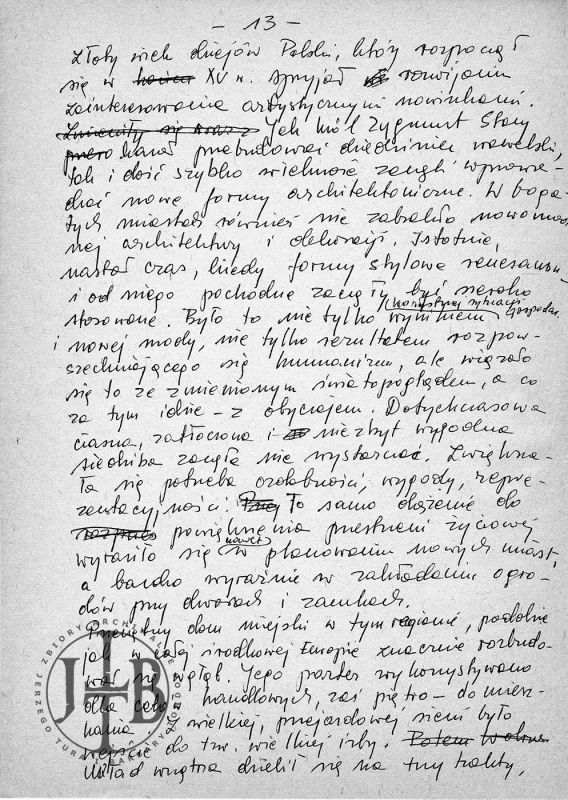 - 13 -
Złoty wiek dziejów Polski, który rozpoczął
się w końcu XV w. sprzyjał rozwijaniu
zainteresowania artystycznymi nowinkami.
Zmieniły się wraz z Jak król Zygmunt Stary
kazał przebudować dziedziniec wawelski,
tak i dość szybko wielmoże zaczęli wprowa-
dzać nowe formy architektoniczne. W boga-
tych miastach również nie zabrakło nowomod
nej architektury i dekoracji. Istotnie,
nastał czas, kiedy formy stylowe renesansu
i od niego pochodne zaczęły być szeroko
stosowane. Było to nie tylko wynikiem korzystnej sytuacji gospodar.
i nowej mody, nie tylko rezultatem rozpow-
szechniającego się humanizmu, ale wiązało
się to ze zmienionym światopoglądem, a co
za tym idzie - z obyczajem. Dotychczasowa
ciasna, zatłoczona i niezbyt wygodna
siedziba zaczęła nie wystarczać. Zwiększa-
ła się potrzeba ozdobności, wygody, repre-
zentacyjności. To samo dążenie do
powiększenia przestrzeni życiowej
wyraziło się nawet w planowaniu nowych miast,
a bardzo wyraźnie w zakładaniu ogro-
dów przy dworach i zamkach.
Przeciętny dom miejski w tym regionie, podobnie
jak w całej środkowej Europie znacznie rozbudo-
wał się w głąb. Jego parter wykorzystywano
dla celów handlowych, zaś piętro - do miesz-
kania. Z wielkiej, przejazdowej sieni było
wejście do tzw. wielkiej izby. Potem
Układ wnętrza dzielił się na trzy trakty,
JERZEGO TURA
ZBIORY ARCHI
JHB